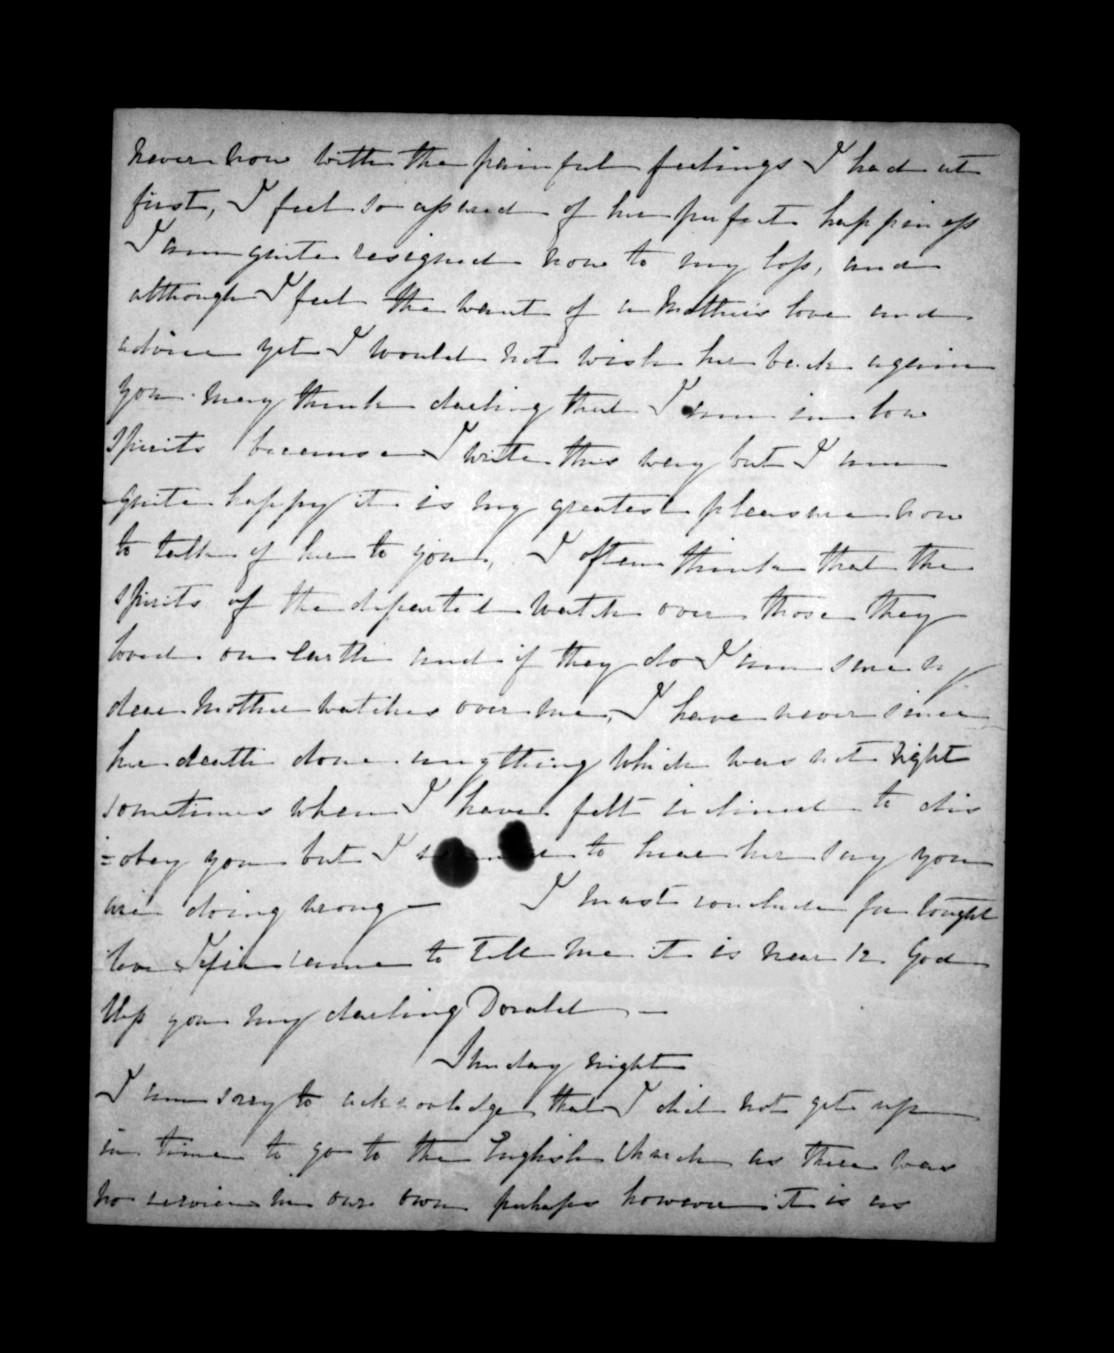 never now with the painful feelings I had at
first, I feel so assured of her perfect happiness
I am quite resigned now to my loss, and
although I feel the want of a Mothers love and
advice yet I would not wish her back again
you may think darling that I am in low
spirits because I write this way but I am
quite happy it is my greatest pleasure now
to talk of her to you, I often think that the
spirits of the departed watch over those they
loved on earth and if they do I am sure my
dear Mother watches over me, I have never since
her death done anything which was not right
sometimes when I have felt inclined to dis
=obey you but I to hear her say you
are doing wrong — I must conclude for tonight
love came to tell me it is near 12 God
bless you my darling Donald —
Sunday night
I am sorry to acknowledge that I did not get up
in time to go to the English Church as there was
no service in our own perhaps however it is as